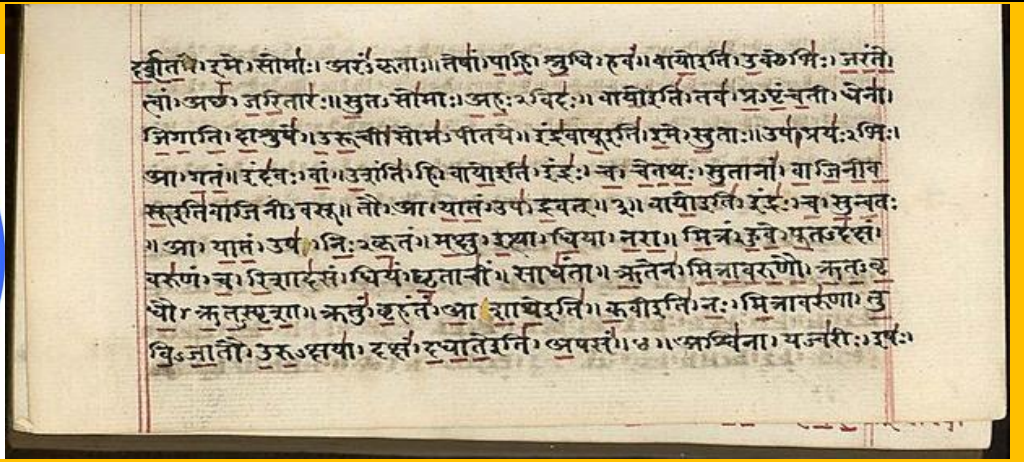 दर्शत।इमे।सोमाः।अरंऽकृताः॥तेषां।पाहि।श्रुधि।हवं॥वायोइति।उक्थेभिः।जरंते।
त्वां।अछ।जरितारः॥सुतऽसोमाः।अहःऽविदः॥वायोइति।तव।प्रऽपृंचती।धेना।
जिगाति।दाशुषे॥उरूची।सोमऽपीतये॥इंद्रवायूइति।इमे।सुताः॥उप।प्रयःऽभिः।
आ।गतं॥इंदवः।वां।उशंति।हि।वायोइति।इंद्रः।च।चेतथः।सुतानां।वाजिनीव
सूइतिवाजिनीऽवसू॥तौ।आ।यातं।उप।द्रवत्॥३॥वायोइति।इंद्रः।च।सुन्वतः
॥आ।यातं।उप।निःऽकृतं॥मक्षु।इत्था।धिया।नरा॥मित्रं।हुवे।पूतऽदक्षं।
वरुणं।च।रिशादसं।धियं।घृताचीं।साधंता॥ऋतेन।मित्रावरुणौ।ऋतऽवृ
धौ।ऋतऽस्पृशा॥क्रतुं।बृहंतं।आशाथेइति॥कवीइति।नः।मित्रावरुणा।तु
विऽजातौ।उरुऽक्षया।दक्षं।दधातेइति।अपसं॥४॥अश्विना।यज्वरीः।इषः।